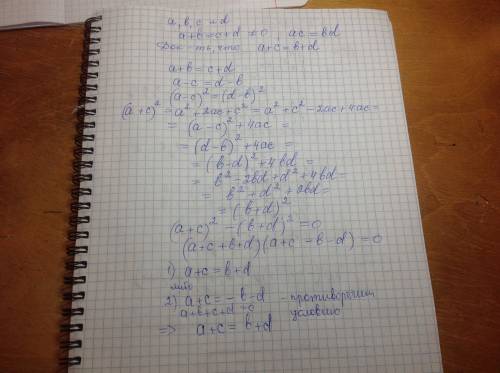 a, b, c и d
a+b=c+d ≠0, ac=bd
Док-ть, что a+c=b+d
a+b=c+d
a-c=d-b
(a-c)²=(d-b)²
(a+c)²=a²+2ac+c²=a²+c²-2ac+4ac=
=(a-c)²+4ac=
=(d-b)²+4ac=
=(b-d)²+4bd=
=b²-2bd+d²+4bd=
=b²+d²+2bd=
=(b+d)²
(a+c)²-(b+d)²=0
(a+c+b+d)(a+c-b-d)=0
1) a+c=b+d
либо
2) a+c=-b-d - противоречит
a+b+c+d≠0 условию
=> a+c=b+d